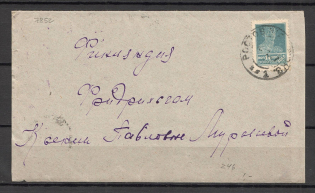 7850
Финляндия
Фридрихсгам
Ксении Павловне Муровской